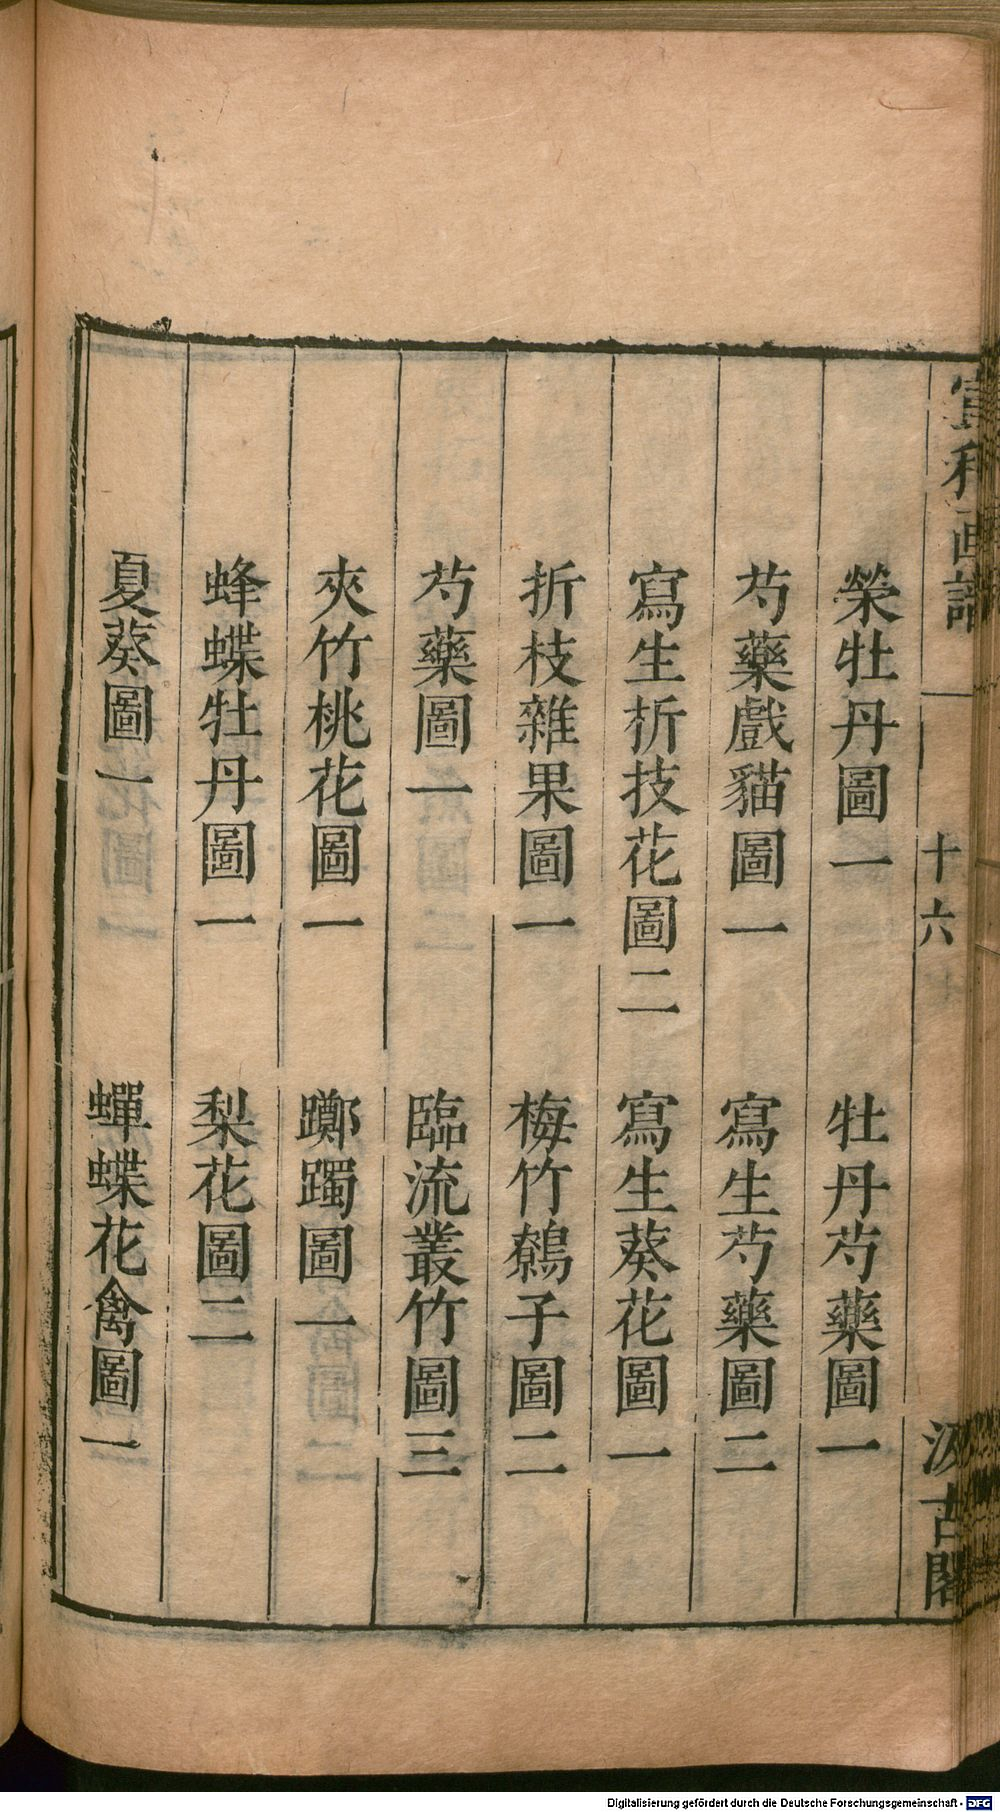 宣和画譜 十六 汲古閣
榮牡丹圖一 牡丹芍藥圖一
芍藥戲貓圖一 寫生芍藥圖二
寫生折技花圖二 寫生葵花圖一
折枝雜果圖一 梅竹鶉子圖二
芍藥圖一 臨流叢竹圖三
夾竹桃花圖一 躑躅圖一
蜂蝶牡丹圖一 梨花圖二
夏葵圖一 蟬蝶花禽圖一
Digitalisierung gefördert durch die Deutsche Forschungsgemeinschaft - DFG